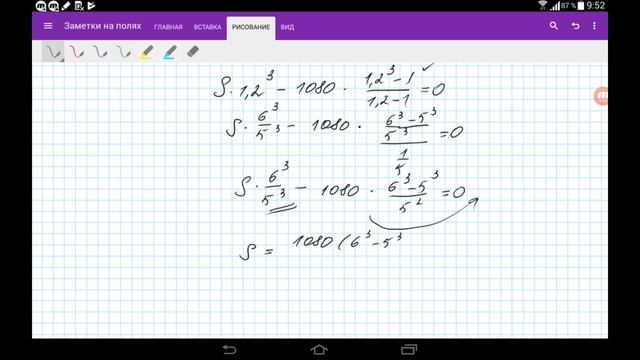 87 % 9:52
Заметки на полях ГЛАВНАЯ ВСТАВКА РИСОВАНИЕ ВИД
S · 1,2³ − 1080 · (1,2³ − 1)/(1,2 − 1) = 0
S · 6³/5³ − 1080 · ((6³ − 5³)/5³)/(1/5) = 0
S · 6³/5³ − 1080 · (6³ − 5³)/5² = 0
S = 1080 (6³ − 5³